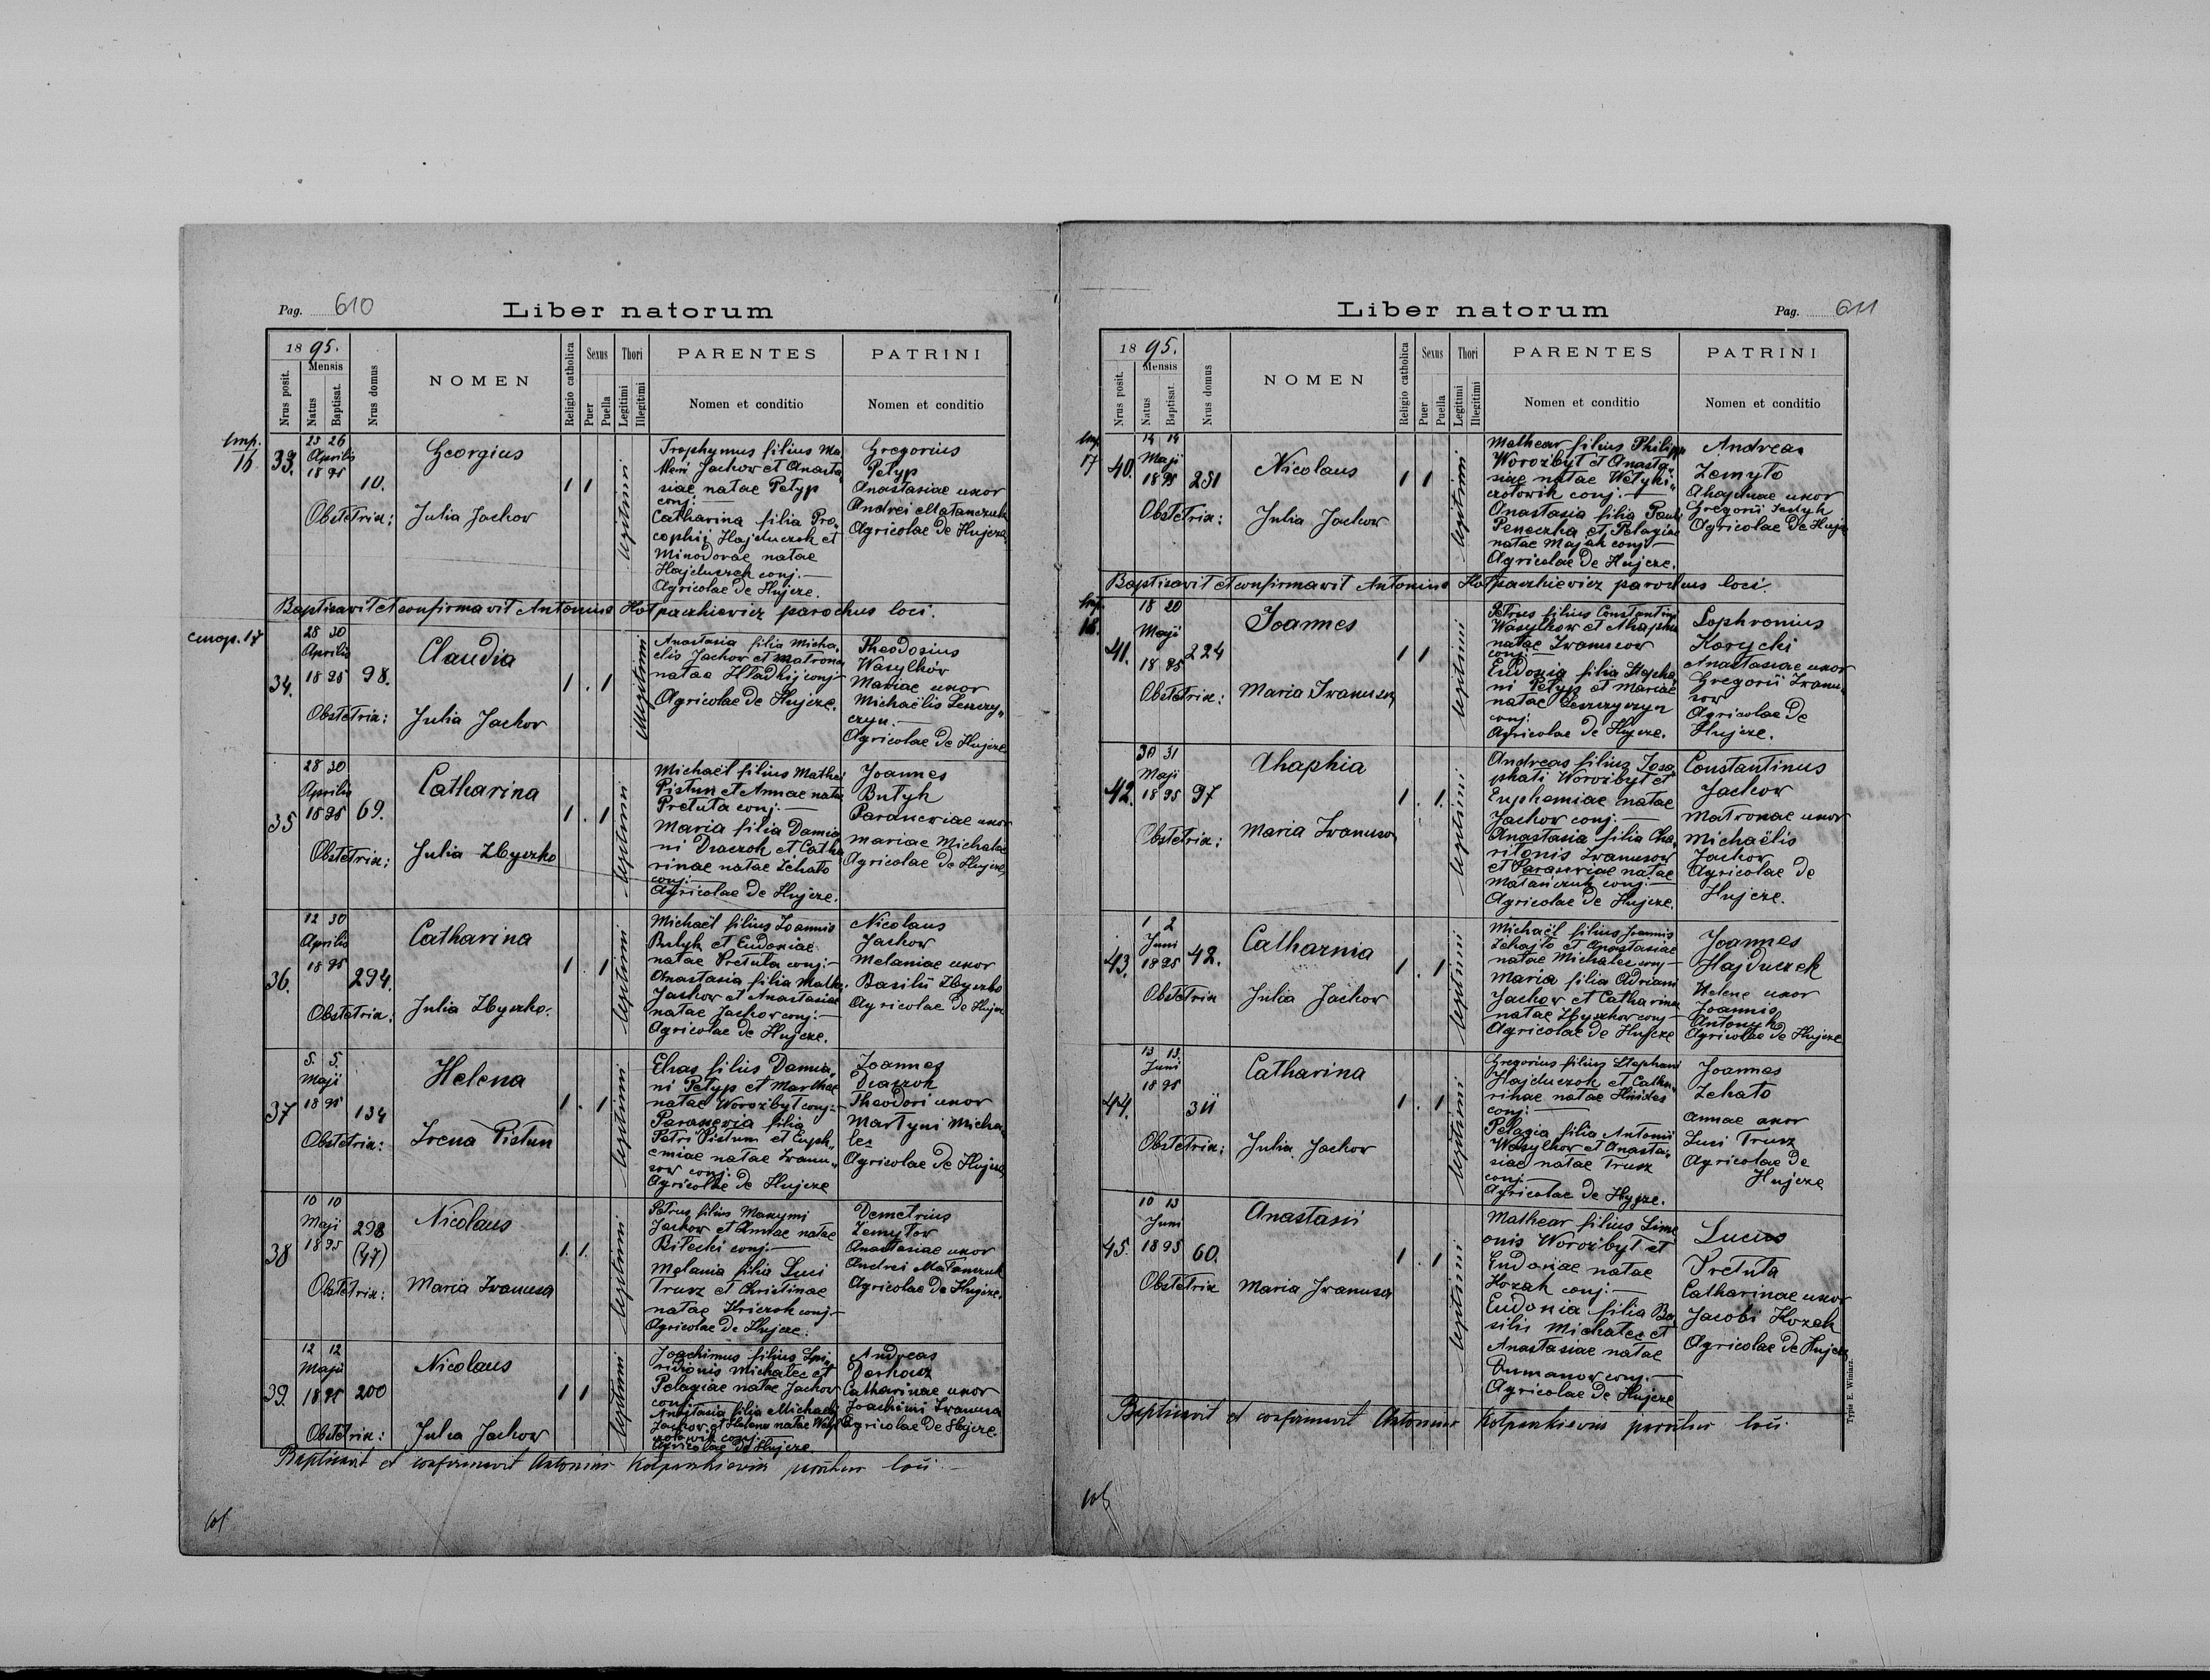 Pag. 610
Liber natorum
1895.
Nrus posit.
Mensis
Natus
Baptisat.
Nrus domus
NOMEN
Religio catholica
Sexus
Puer
Puella
Thori
Legitimi
Illegitimi
PARENTES
Nomen et conditio
PATRINI
Nomen et conditio
33.
23 26
Aprilis
1895
10.
Georgius
Obstetrix: Julia Jachow
1 1
legitimi
Trophymus filius Ma
Jachow et Anasta
siae natae Petyp
conj.
Catharina filia Pro„
cophii Hajduczok et
Minodorae natae
Hajduczek conj.—
Agricolae de Hujcze.
Gregorius
Petyp
Anastasiae uxor
Andrei Matanczuk
Agricolae de Hujcze.
Baptisavit et confirmavit Antonius Hotpaczkiewicz parochus loci.
34.
28 30
Aprilis
1895
98.
Claudia
Obstetrix: Julia Jachow
1 . 1
Illegitimi
Anastasia filia Micha„
elis Jachow et Matrona
natae Hladkij conj—
Agricolae de Hujcze.
Theodosius
Wasylków
Mariae uxor
Michaëlis Leszczy„
czyn.—
Agricolae de Hujcze
35
28 30
Aprilis
1895
69.
Catharina
Obstetrix: Julia Zbyszko
1 . 1
legitimi
Michaël filius Mathei
Pistun et Annae nata
Pretuta conj.—
Maria filia Damia
ni Draczok et Catha
rinae natae Zehato
conj.—
Agricolae de Hujcze.
Joannes
Butyk
Parasceviae uxor
Mariae Michalec
Agricolae de Hujcze
36.
12 30
Aprilis
1895
294.
Catharina
Obstetrix: Julia Zbyszko.
1 . 1
legitimi
Michaël filius Joannis
Butyk et Eudoxiae
natae Pretuta conj.—
Anastasia filia Mathe
Jachow et Anastasiae
natae Jachow conj.—
Agricolae de Hujcze.
Nicolaus
Jachow
Melaniae uxor
Basilii Zbyszko
Agricolae de Hujcze
37
5. 5.
Maji
1895
134
Helena
Obstetrix: Irena Pistun
1 . 1
legitimi
Elias filius Damia„
ni Petyp et Marthae
natae Worożbyt conj—
Parascevia filia
Petri Pistun et Euph„
emiae natae Iwanu„
sow conj.
Agricolae de Hujcze
Joannes
Draczok
Theodori uxor
Martyni Micha
lec
Agricolae de Hujcze
38
10 10
Maji
1895
298
(47)
Nicolaus
Obstetrix: Maria Iwanusa
1. 1.
legitimi
Petrus filius Maxymi
Jachow et Annae natae
Bilecki conj.—
Melania filia Luci
Trusz et Christinae
natae Hriczok conj.—
Agricolae de Hujcze.
Demetrius
Zemytow
Anastasiae uxor
Andrei Matanczuk
Agricolae de Hujcze.
39.
12 12
Maji
1895
200
Nicolaus
Obstetrix: Julia Jachow
1 1
legitimi
Joachimus filius Spi„
ridionis Michalec et
Pelagiae natae Jachow
conj.
Anastasia filia Michaelis
Jachow et Helena natae
conj.—
Agricolae de Hujcze.
Andreas
Catharinae uxor
Joachimi Iwanusa
Agricolae de Hujcze.
Baptisavit et confirmavit Antonius Hotpaczkiewicz parochus loci
Liber natorum
Pag. 611
1895.
Nrus posit.
Mensis
Natus
Baptisat.
Nrus domus
NOMEN
Religio catholica
Sexus
Puer
Puella
Thori
Legitimi
Illegitimi
PARENTES
Nomen et conditio
PATRINI
Nomen et conditio
17
40.
14 14
Maji
1895
251
Nicolaus
Obstetrix: Julia Jachow
1 1
legitimi
Mathear filius Philipp
Worożbyt et Anasta„
siae natae
conj.—
Anastasia filia Pauli
Penaczka et Pelagiae
natae Majak conj—
Agricolae de Hujcze.
Andreas
Zemyto
Ahaphiae uxor
Gregorii
Agricolae de Hujcze
Baptisavit et confirmavit Antonius Hotpaczkiewicz parochus loci.
18.
41.
18 20
Maji
1895
224
Joannes
Obstetrix: Maria Iwanusa
1 1
legitimi
Petrus filius Constantini
Wasylkow et Ahaphia
natae Iwanusow
conj.—
Eudoxia filia Stepha
ni Petyp et Mariae
natae Leszczyczyn
conj.
Agricolae de Hujcze.
Sophronius
Korycki
Anastasiae uxor
Gregorii Iwanu„
sow
Agricolae de
Hujcze.
42.
30 31
Maji
1895
97
Ahaphia
Obstetrix: Maria Iwanusa
1 . 1.
legitimi
Andreas filius Josa
phati Worożbyt et
Euphemiae natae
Jachow conj.—
Anastasia filia Cha„
ritonis Iwanusow
et Parasceviae natae
Matanczuk conj.—
Agricolae de Hujcze.
Constantinus
Jachow
Matronae uxor
Michaëlis
Jachow
Agricolae de
Hujcze.
43.
1 2
Juni
1895
42.
Catharina
Obstetrix Julia Jachow
1 . 1
legitimi
Michaël filius Joannis
Zehajlo et Anastasiae
natae Michalec conj—
Maria filia Adriani
Jachow et Catharinae
natae Zbyszkow conj—
Agricolae de Hujcze
Joannes
Hajduczek
Helene uxor
Joannis
Antonyk
Agricolae de Hujcze
44.
13 13.
Juni
1895
311
Catharina
Obstetrix: Julia Jachow
1 . 1
legitimi
Gregorius filius Stephani
Hajduczok et Catha„
rinae natae
conj:
Pelagia filia Antonii
Wasylkow et Anasta„
siae natae Trusz
conj—
Agricolae de Hujcze.
Joannes
Zehato
Annae uxor
Luci Trusz
Agricolae de
Hujcze
45.
10 13
Juni
1895
60.
Anastasii
Obstetrix Maria Iwanusa
1 . 1
legitimi
Mathear filius Sime
onis Worożbyt et
Eudoxiae natae
Kozak conj.—
Eudoxia filia Ba
silii Michalec et
Anastasiae natae
Dumanow conj.—
Agricolae de Hujcze
Lucas
Pretuta
Catharinae uxor
Jacobi Kozak
Agricolae de Hujcze
Baptisavit et confirmavit Antonius Hotpaczkiewicz parochus loci
Typis E. Winiarz.